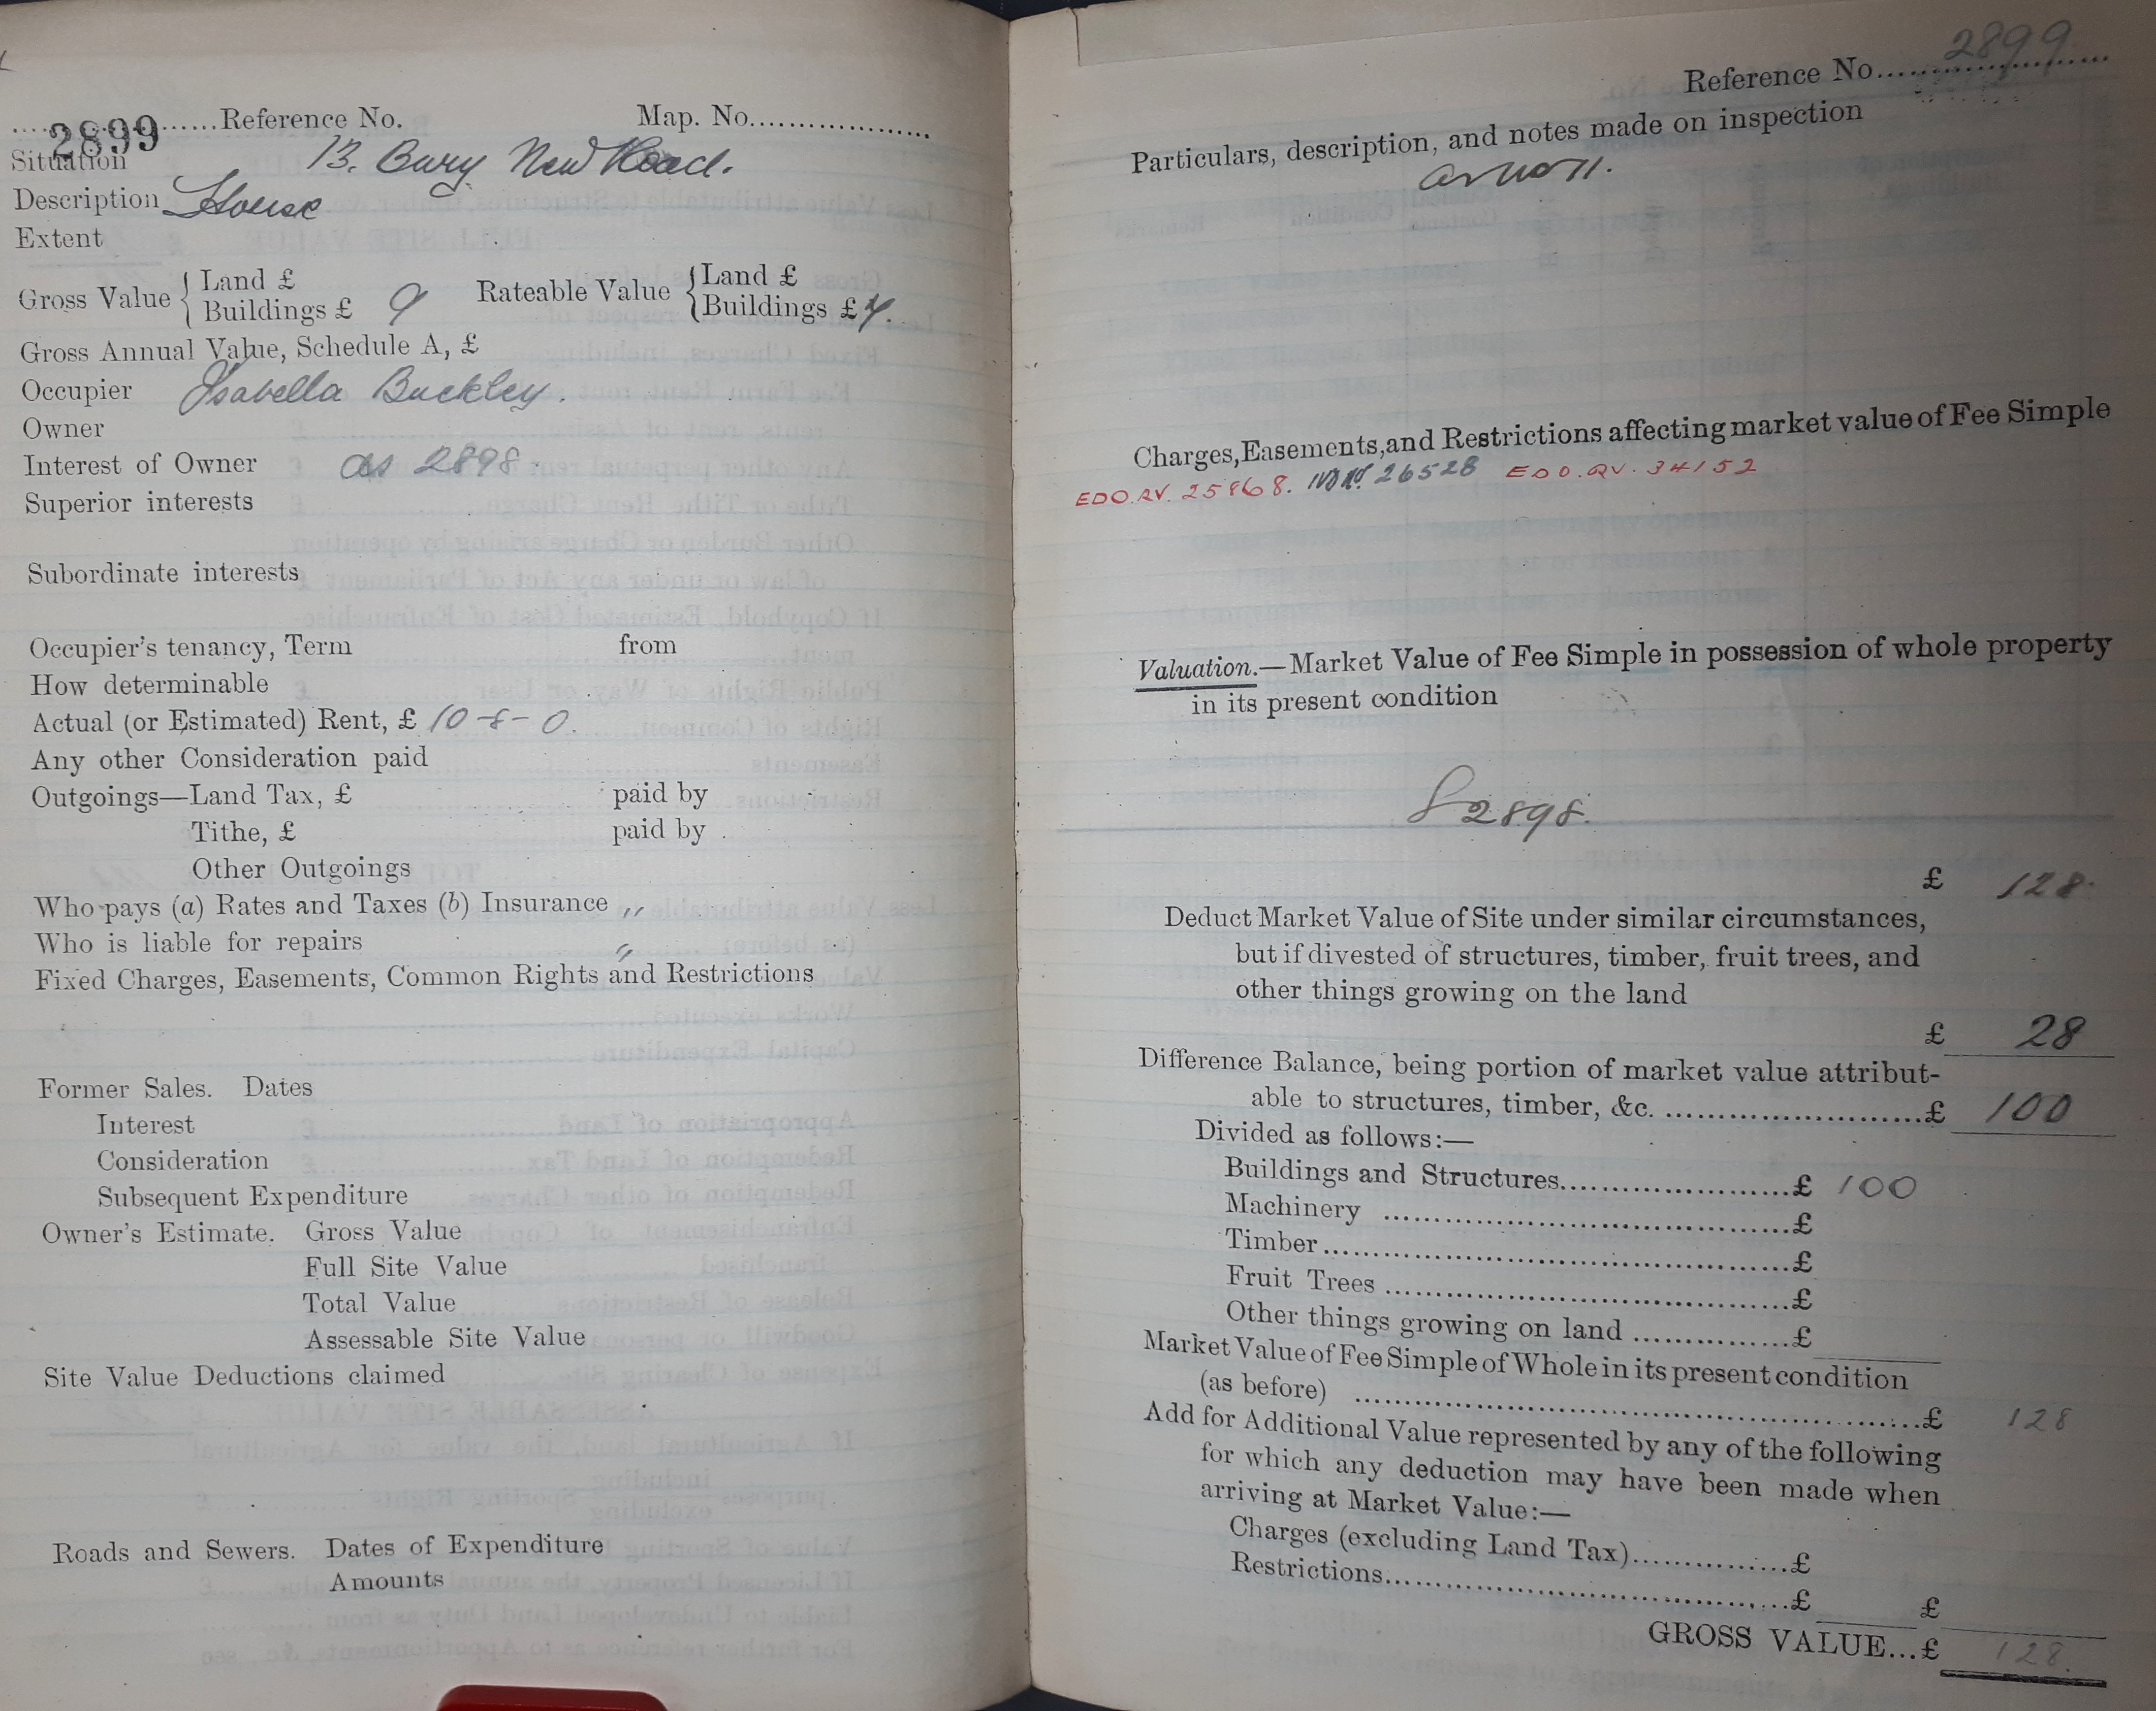 2899 Reference No. Map. No.
Situation 13. Bury New Road.
Description House
Extent
Gross Value { Land £
Buildings £ 9
Rateable Value { Land £
Buildings £ 7.
Gross Annual Value, Schedule A, £
Occupier Isabella Buckley.
Owner
Interest of Owner as 2898.
Superior interests
Subordinate interests
Occupier's tenancy, Term from
How determinable
Actual (or Estimated) Rent, £ 10-8-0.
Any other Consideration paid
Outgoings—Land Tax, £ paid by
Tithe, £ paid by
Other Outgoings
Who pays (a) Rates and Taxes (b) Insurance ,,
Who is liable for repairs ,,
Fixed Charges, Easements, Common Rights and Restrictions
Former Sales. Dates
Interest
Consideration
Subsequent Expenditure
Owner's Estimate. Gross Value
Full Site Value
Total Value
Assessable Site Value
Site Value Deductions claimed
Roads and Sewers. Dates of Expenditure
Amounts
Reference No. 2899
Particulars, description, and notes made on inspection
Charges, Easements, and Restrictions affecting market value of Fee Simple
EDO. RV. 25868. 26528 EDO. RV. 34152
Valuation.—Market Value of Fee Simple in possession of whole property
in its present condition
2898.
£ 128.
Deduct Market Value of Site under similar circumstances,
but if divested of structures, timber, fruit trees, and
other things growing on the land
£ 28
Difference Balance, being portion of market value attribut-
able to structures, timber, &c. £ 100
Divided as follows:—
Buildings and Structures £ 100
Machinery £
Timber £
Fruit Trees £
Other things growing on land £
Market Value of Fee Simple of Whole in its present condition
(as before) £ 128
Add for Additional Value represented by any of the following
for which any deduction may have been made when
arriving at Market Value:—
Charges (excluding Land Tax) £
Restrictions £ £
GROSS VALUE...£ 128.